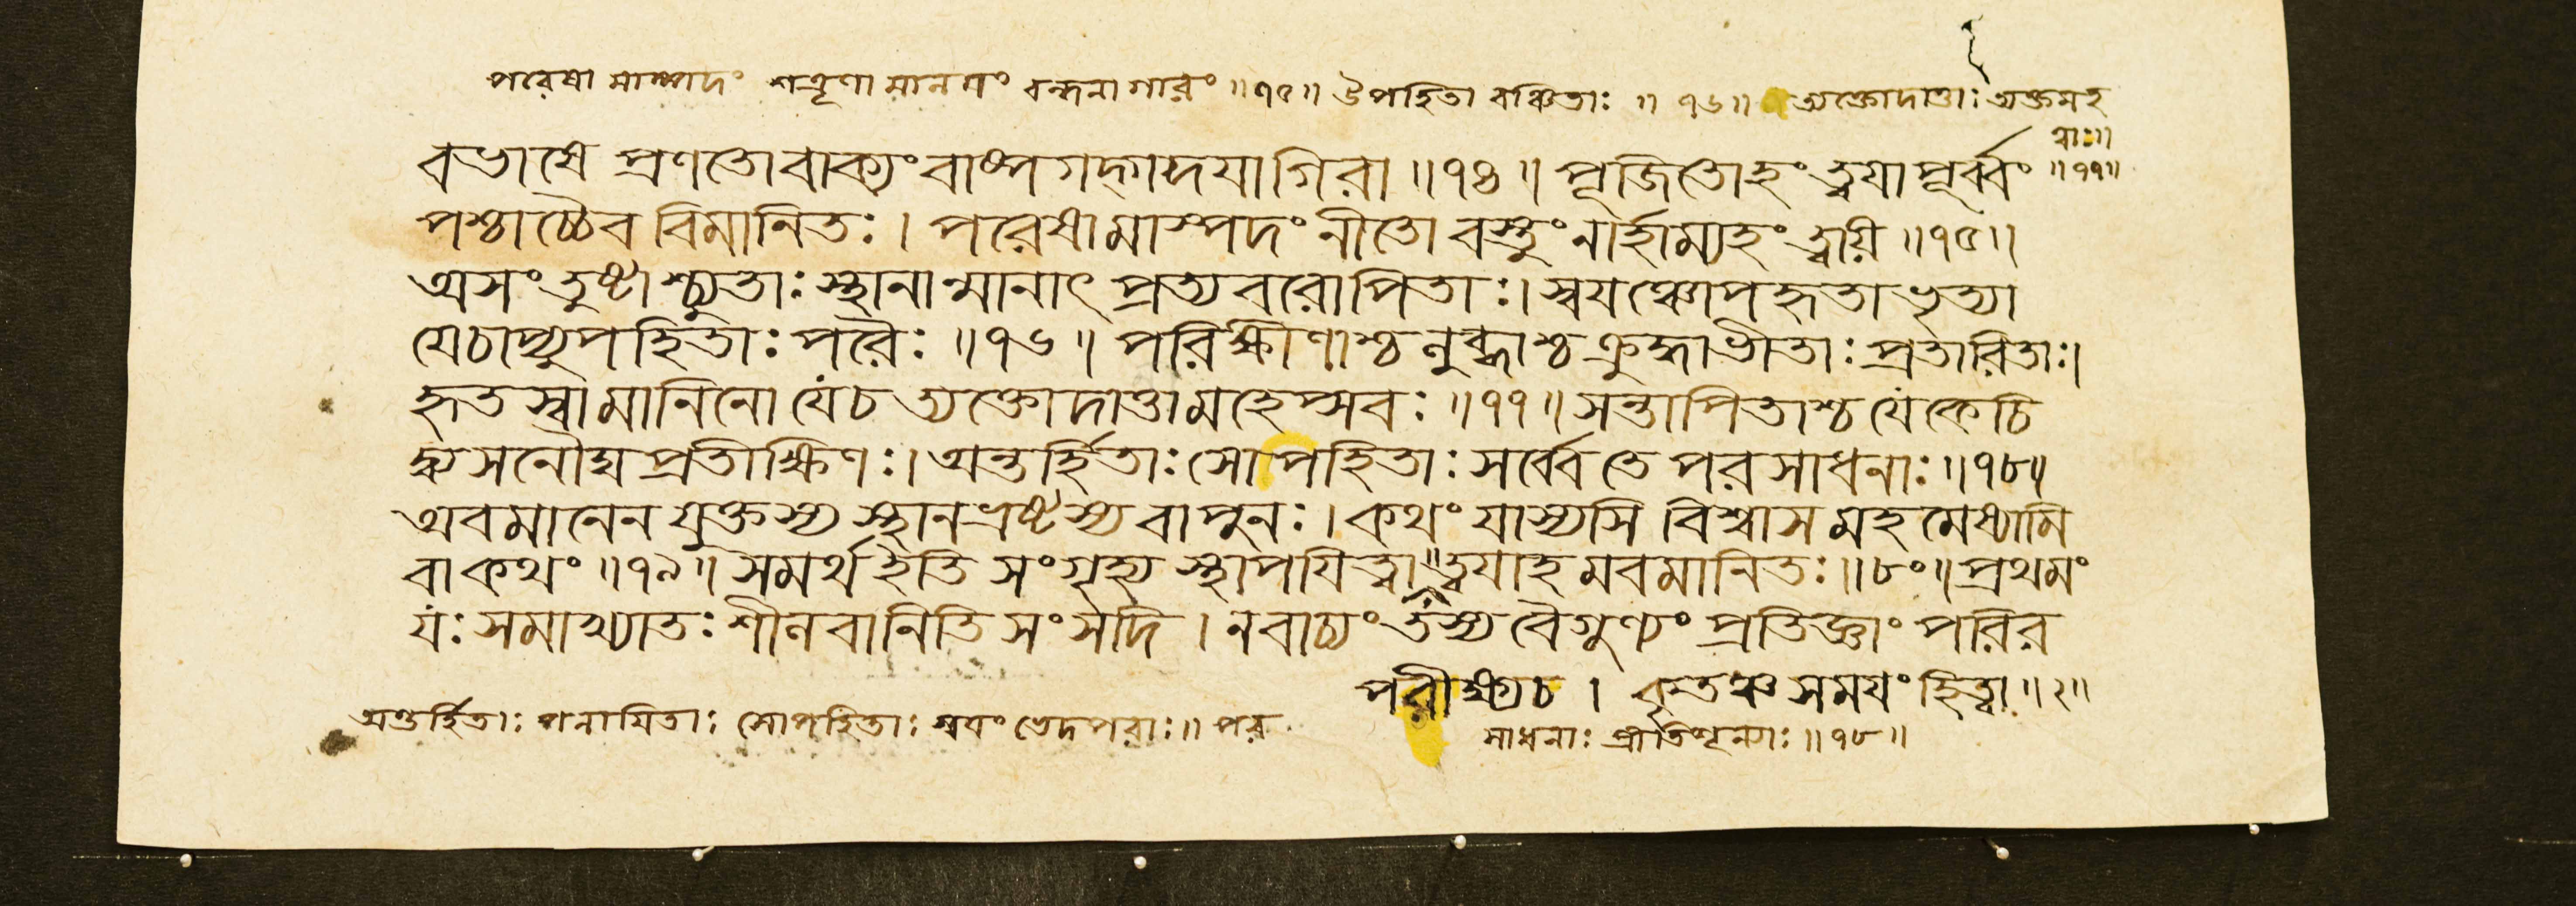 পরেষামাস্পদং শত্রূণামালযং বন্ধনাগারং ॥৭৫॥ উপহিতা বঞ্চিতাঃ ॥ ৭৬॥ ত্যক্তোদাত্তাঃ ত্যক্তমহ
রাঃ॥
বভাষে প্রণতো বাক্যং বাষ্পগদ্গদযা গিরা ॥৭৪॥ পূজিতোহং ত্বযা পূর্ব্বং ॥৭৭॥
পশ্চাচ্চৈব বিমানিতঃ। পরেষামাস্পদং নীতো বস্তুং নার্হাম্যহং ত্বযি ॥৭৫॥
অসংতুষ্টাশ্চ্যুতাঃ স্থানান্মানাৎ প্রত্যবরোপিতাঃ। স্বযঞ্চোপহৃতা ভৃত্যা
যে চাপ্যুপহিতাঃ পরৈঃ ॥৭৬॥ পরিক্ষীণাশ্চ লুব্ধাশ্চ ক্রুদ্ধা ভীতাঃ প্রতারিতাঃ।
হৃতস্বা মানিনো যে চ ত্যক্তোদাত্তা মহেপ্সবঃ ॥৭৭॥ সন্তাপিতাশ্চ যে কেচি
দ্ব্যসনৌঘপ্রতীক্ষিণঃ। অন্তর্হিতাঃ সোপহিতাঃ সর্ব্বে তে পরসাধনাঃ ॥৭৮॥
অবমানেন যুক্তস্য স্থানভ্রষ্টস্য বা পুনঃ। কথং যাস্যসি বিশ্বাসমহমেষ্যামি
বা কথং ॥৭৯॥ সমর্থ ইতি সংগৃহ্য স্থাপযিত্বা॥ ত্বযাহমবমানিতঃ ॥৮০॥ প্রথমং
যঃ সমাখ্যাতঃ শীলবানিতি সংসদি। ন বাচ্যং তস্য বৈগুণ্যং প্রতিজ্ঞাং পরির
পরীক্ষ্য চ। কৃতঞ্চ সমযং হিত্বা ॥২॥
অন্তর্হিতাঃ পলাযিতাঃ সোপহিতাঃ স্বযং ভেদপরাঃ॥ পর
সাধনাঃ প্রতিশূলগাঃ ॥৭৮॥